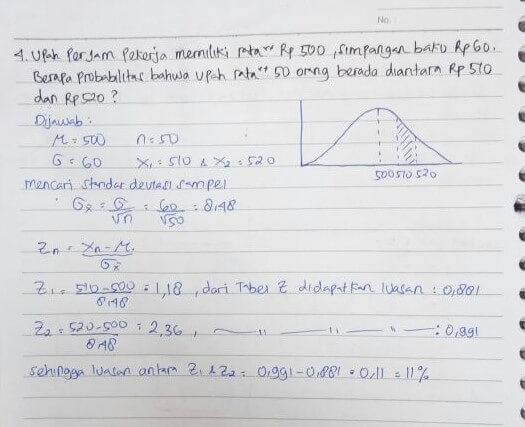 No.:
4. Upah Perjam Pekerja memiliki rata" Rp 500, simpangan baku Rp 60.
Berapa Probabilitas bahwa upah rata" 50 orang berada diantara Rp 510
dan Rp 520 ?
Dijawab :
μ = 500 n = 50
σ = 60 x₁ = 510 & x₂ = 520
500 510 520
mencari standar deviasi sampel
σx̄ = σ/√n = 60/√50 = 8,48
Zn = xn - μ / σx̄
Z₁ = 510-500/8,48 = 1,18 , dari Tabel Z didapatkan luasan : 0,881
Z₂ = 520-500/8,48 = 2,36 , — " — " — " — : 0,991
sehingga luasan antara Z₁ & Z₂ = 0,991 - 0,881 = 0,11 = 11%